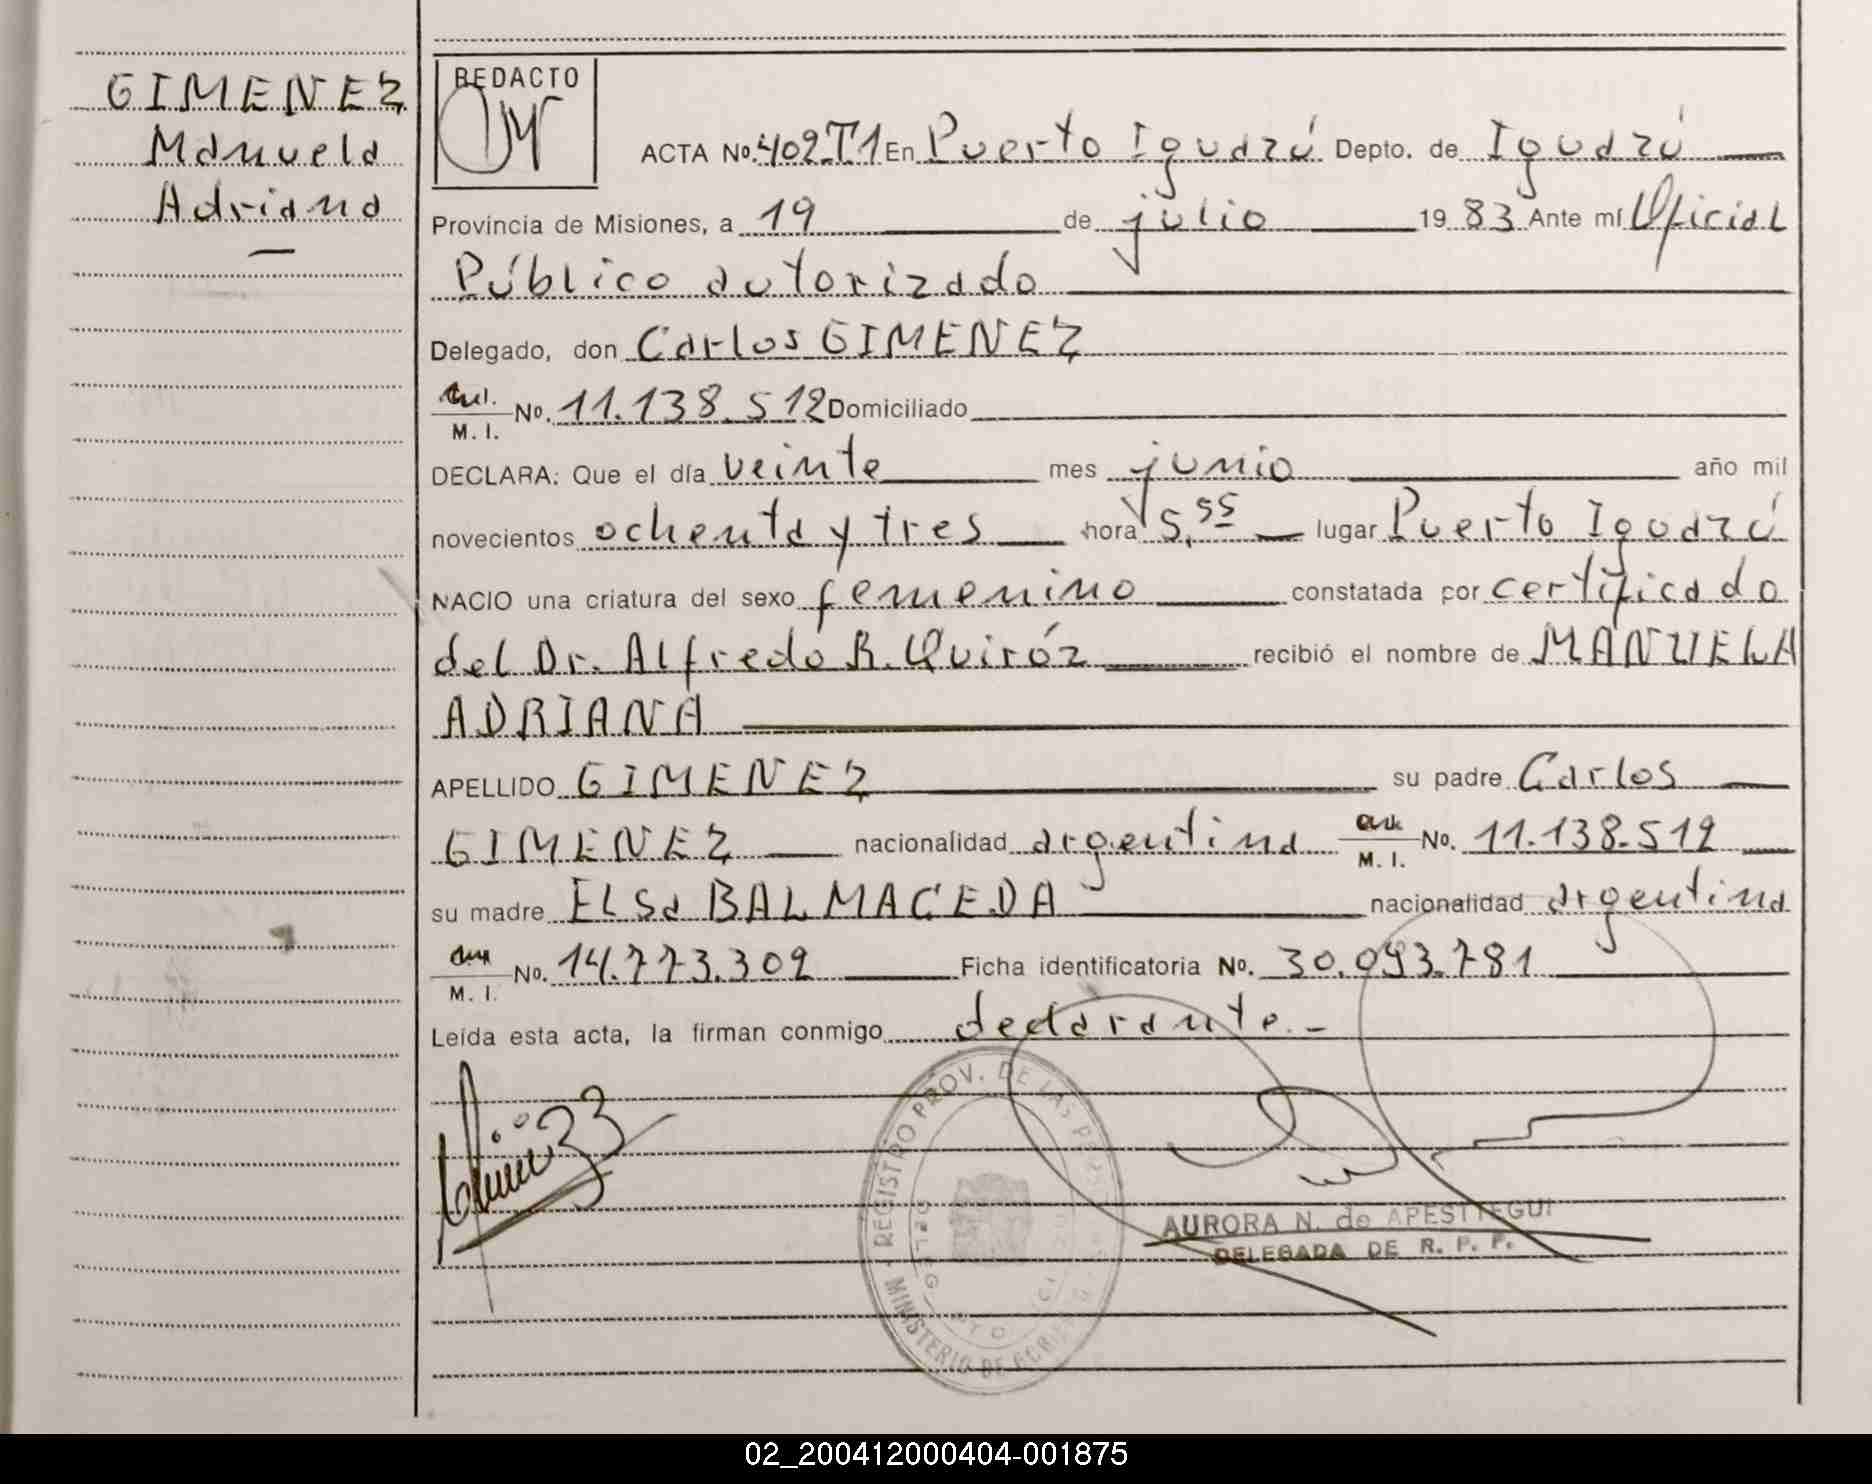 GIMENEZ
Manuela
Adriana
REDACTO
ACTA No. 402 T1 En Puerto Iguazú Depto. de Iguazú
Provincia de Misiones, a 19 de julio 1983 Ante mí Oficial
Público autorizado
Delegado, don Carlos GIMENEZ
M. I. No. 11.138.512 Domiciliado
DECLARA: Que el día veinte mes junio año mil
novecientos ochenta y tres hora 5,55 lugar Puerto Iguazú
NACIO una criatura del sexo femenino constatada por certificado
del Dr. Alfredo R. Quiróz recibió el nombre de MANUELA
ADRIANA
APELLIDO GIMENEZ su padre Carlos
GIMENEZ nacionalidad argentina M. I. No. 11.138.512
su madre ELSa BALMACEDA nacionalidad argentina
M. I. No. 14.773.309 Ficha identificatoria No. 30.093.781
Leída esta acta, la firman conmigo declarante.-
REGISTRO PROV. DE LAS PERS
MINISTERIO DE GOBIERNO
AURORA N. de APESTTEGUI
DELEGADA DE R. P. P.
02_200412000404-001875